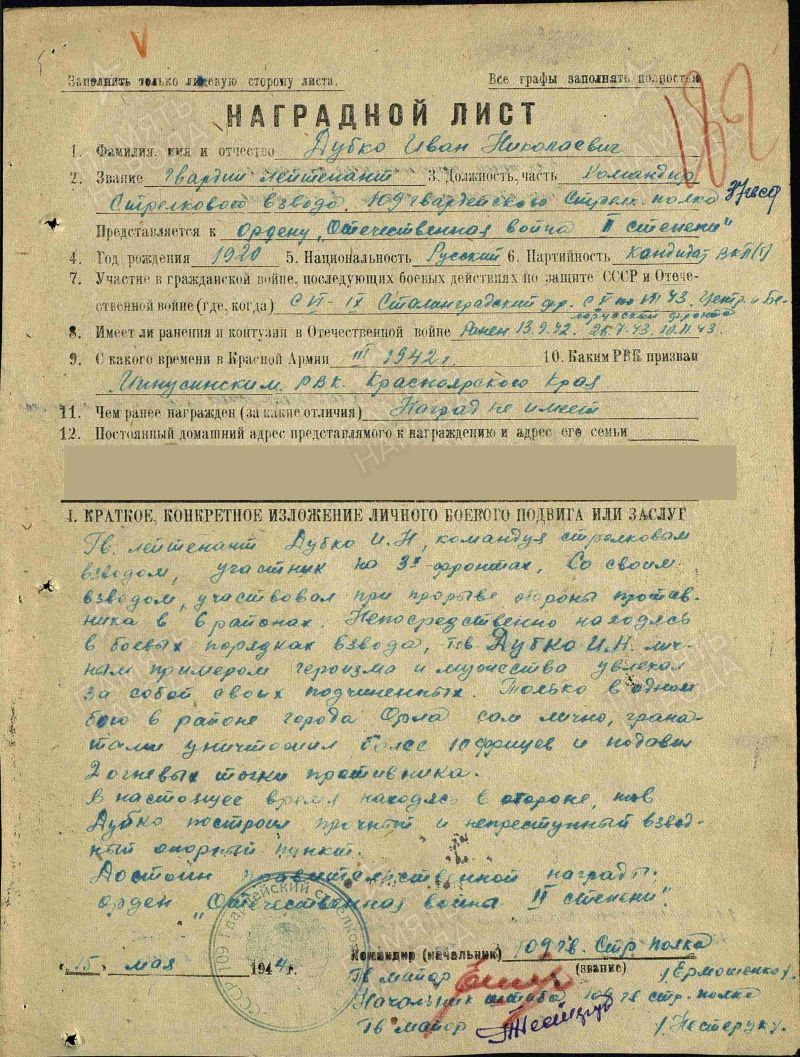 Заполнить только лицевую сторону листа. Все графы заполнять полностью
НАГРАДНОЙ ЛИСТ
182
1. Фамилия, имя и отчество Дубко Иван Николаевич
2. Звание Гвардии лейтенант 3. Должность, часть Командир
Стрелкового взвода, 109 гвардейского Стрелк. полка 37 гвсд
Представляется к Ордену „Отечественная война II степени"
4. Год рождения 1920 5. Национальность Русский 6. Партийность Кандидат ВКП(б)
7. Участие в гражданской войне, последующих боевых действиях по защите СССР и Отече-
ственной войне (где, когда) С VI - IX Сталинградский фр. С V по XI 43. Центр. и Бе-
лорусский фронта
8. Имеет ли ранения и контузии в Отечественной войне Ранен 13.9.42. 26.7.43. 10.11.43.
9. С какого времени в Красной Армии III 1942 г. 10. Каким РВК призван
РВК. Красноярского Края
11. Чем ранее награжден (за какие отличия) Наград не имеет
12. Постоянный домашний адрес представлямого к награждению и адрес его семьи
I. КРАТКОЕ, КОНКРЕТНОЕ ИЗЛОЖЕНИЕ ЛИЧНОГО БОЕВОГО ПОДВИГА ИЛИ ЗАСЛУГ
Гв. лейтенант Дубко И.Н, командуя стрелковым
взводом, участник на 3х фронтах. Со своим
взводом, участвовал при прорыве обороны против-
ника в 6 районах. Непосредственно находясь
в боевых порядках взвода, тов Дубко И.Н. лич-
ным примером героизма и мужества увлекал
за собой своих подчиненных. Только в одном
бою в районе города Орла сам лично, грана-
тами уничтожил более 10 фрицев и подавил
2 огневых точки противника.
В настоящее время находясь в обороне, тов
Дубко построил прочный и непреступный взвод-
ный опорный пункт.
Достоин правительственной награды.
орден „Отечественная война II степени".
109 гвардейский стрелковый
СССР
Командир (начальник) 109 гв. Стр полка
"15" мая 1944 г. (звание)
Гв майор /Ермошенко/.
Начальник штаба 109 гв стр. полка
Гв майор /Нестерук/.
ПАМЯТЬ НАРОДА